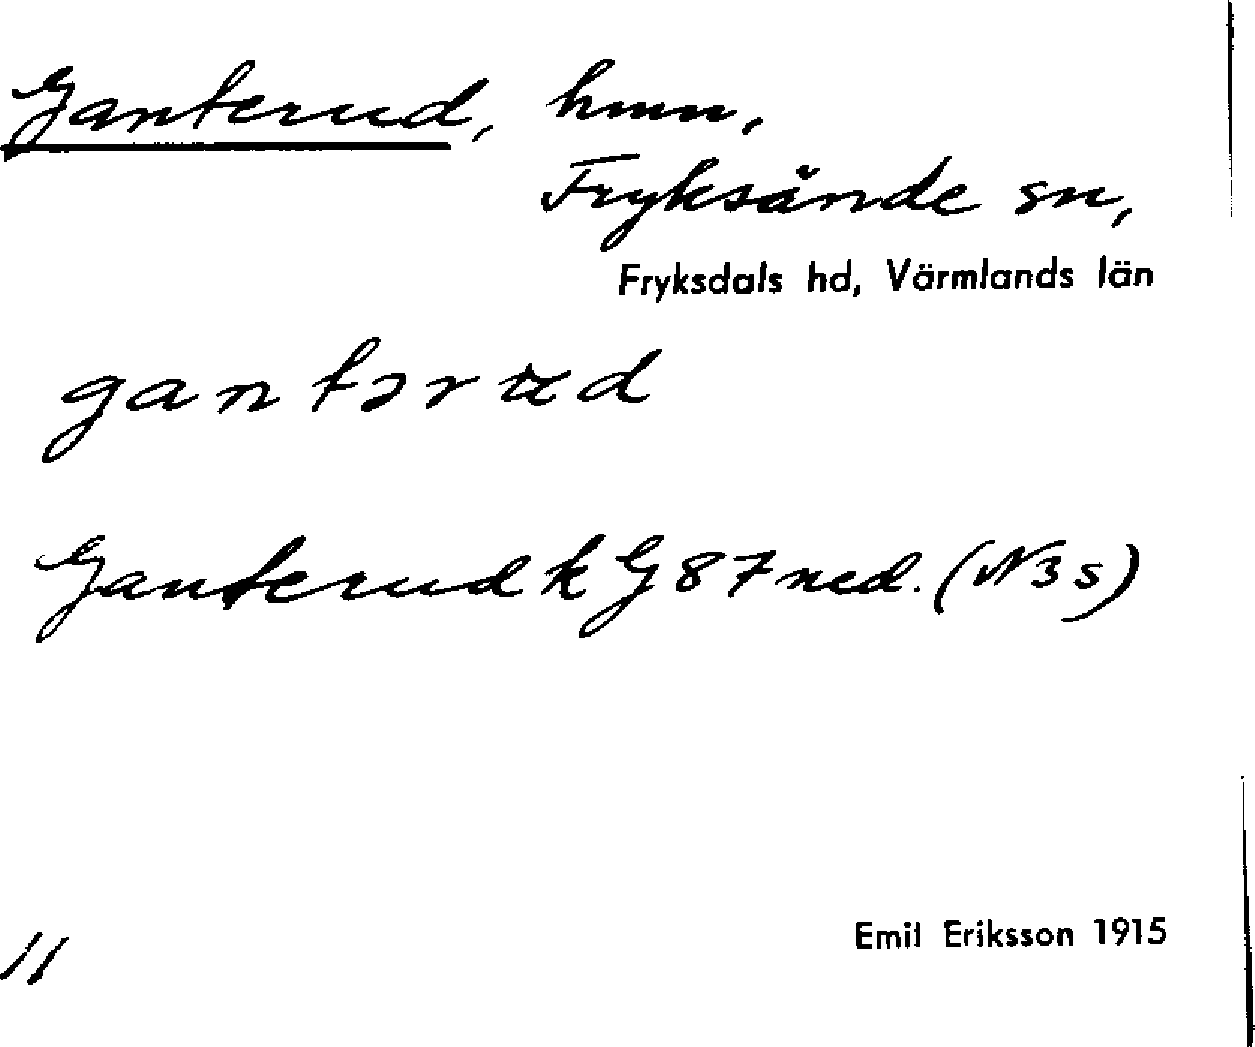 Ganterud, hmn,
Fryksände sn,
Fryksdals hd, Värmlands län
gantərʉd
Ganterud k G 87 ned. (N3s)
Emil Eriksson 1915
11